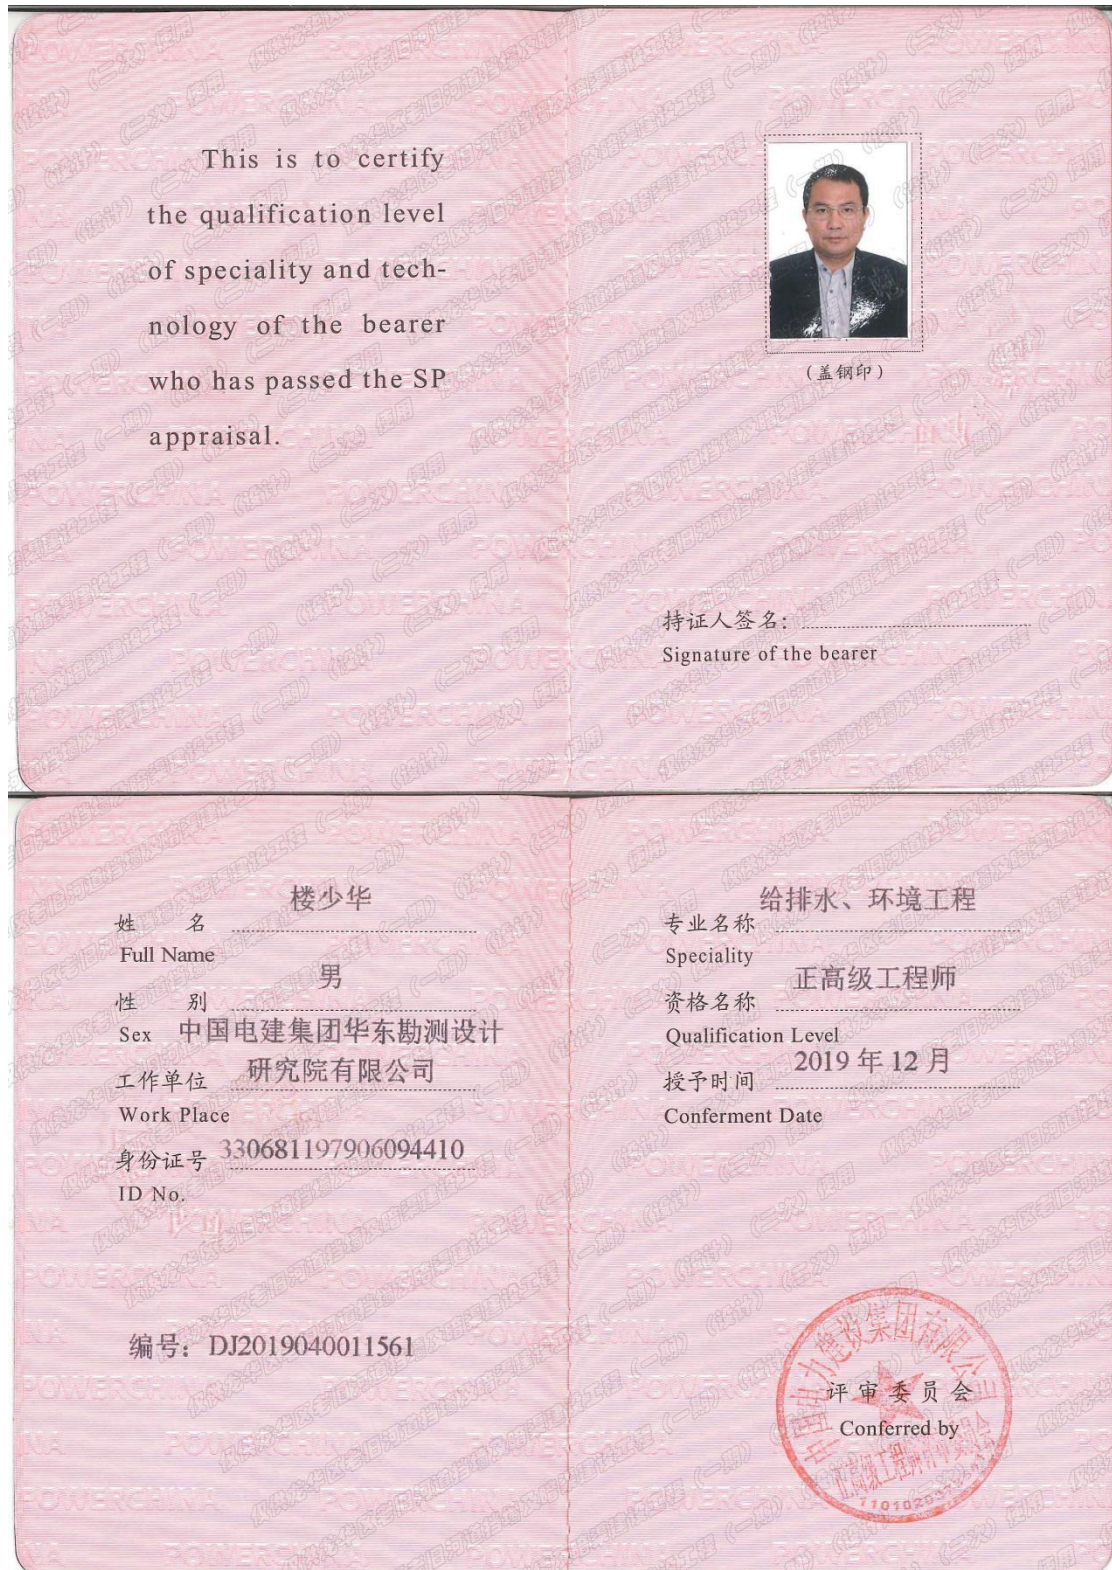 This is to certify
the qualification level
of speciality and tech-
nology of the bearer
who has passed the SP
appraisal.
(盖钢印)
持证人签名:
Signature of the bearer
姓 名 楼少华
Full Name
性 别 男
Sex
工作单位 中国电建集团华东勘测设计
研究院有限公司
Work Place
身份证号 330681197906094410
ID No.
编号：DJ2019040011561
专业名称 给排水、环境工程
Speciality
资格名称 正高级工程师
Qualification Level
授予时间 2019年12月
Conferment Date
中国电力建设集团有限公司
评审委员会
Conferred by
POWERCHINA